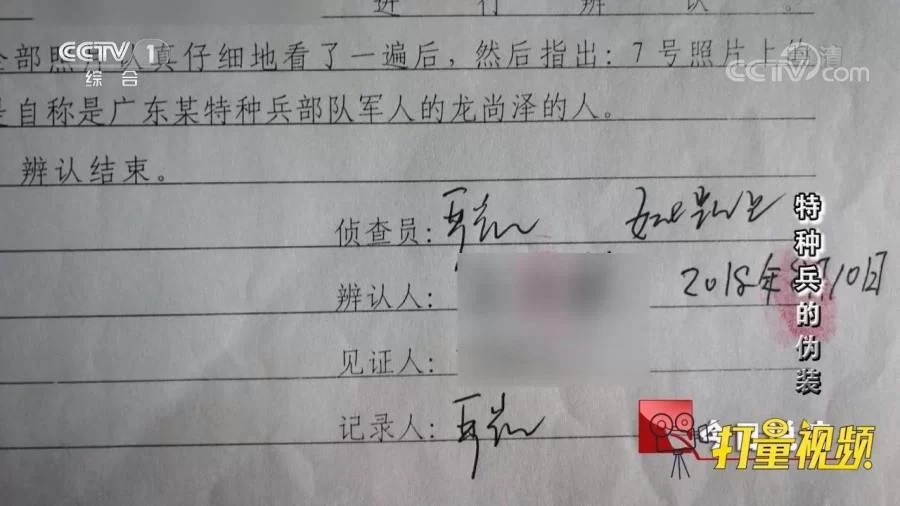 进行辨认。
CCTV 1
综合
全部照片认真仔细地看了一遍后，然后指出：7号照片上的
CCTV.com
是自称是广东某特种兵部队军人的龙尚泽的人。
辨认结束。
侦查员：
辨认人：
2018年 月10日
见证人：
记录人：
特种兵的伪装
打量视频